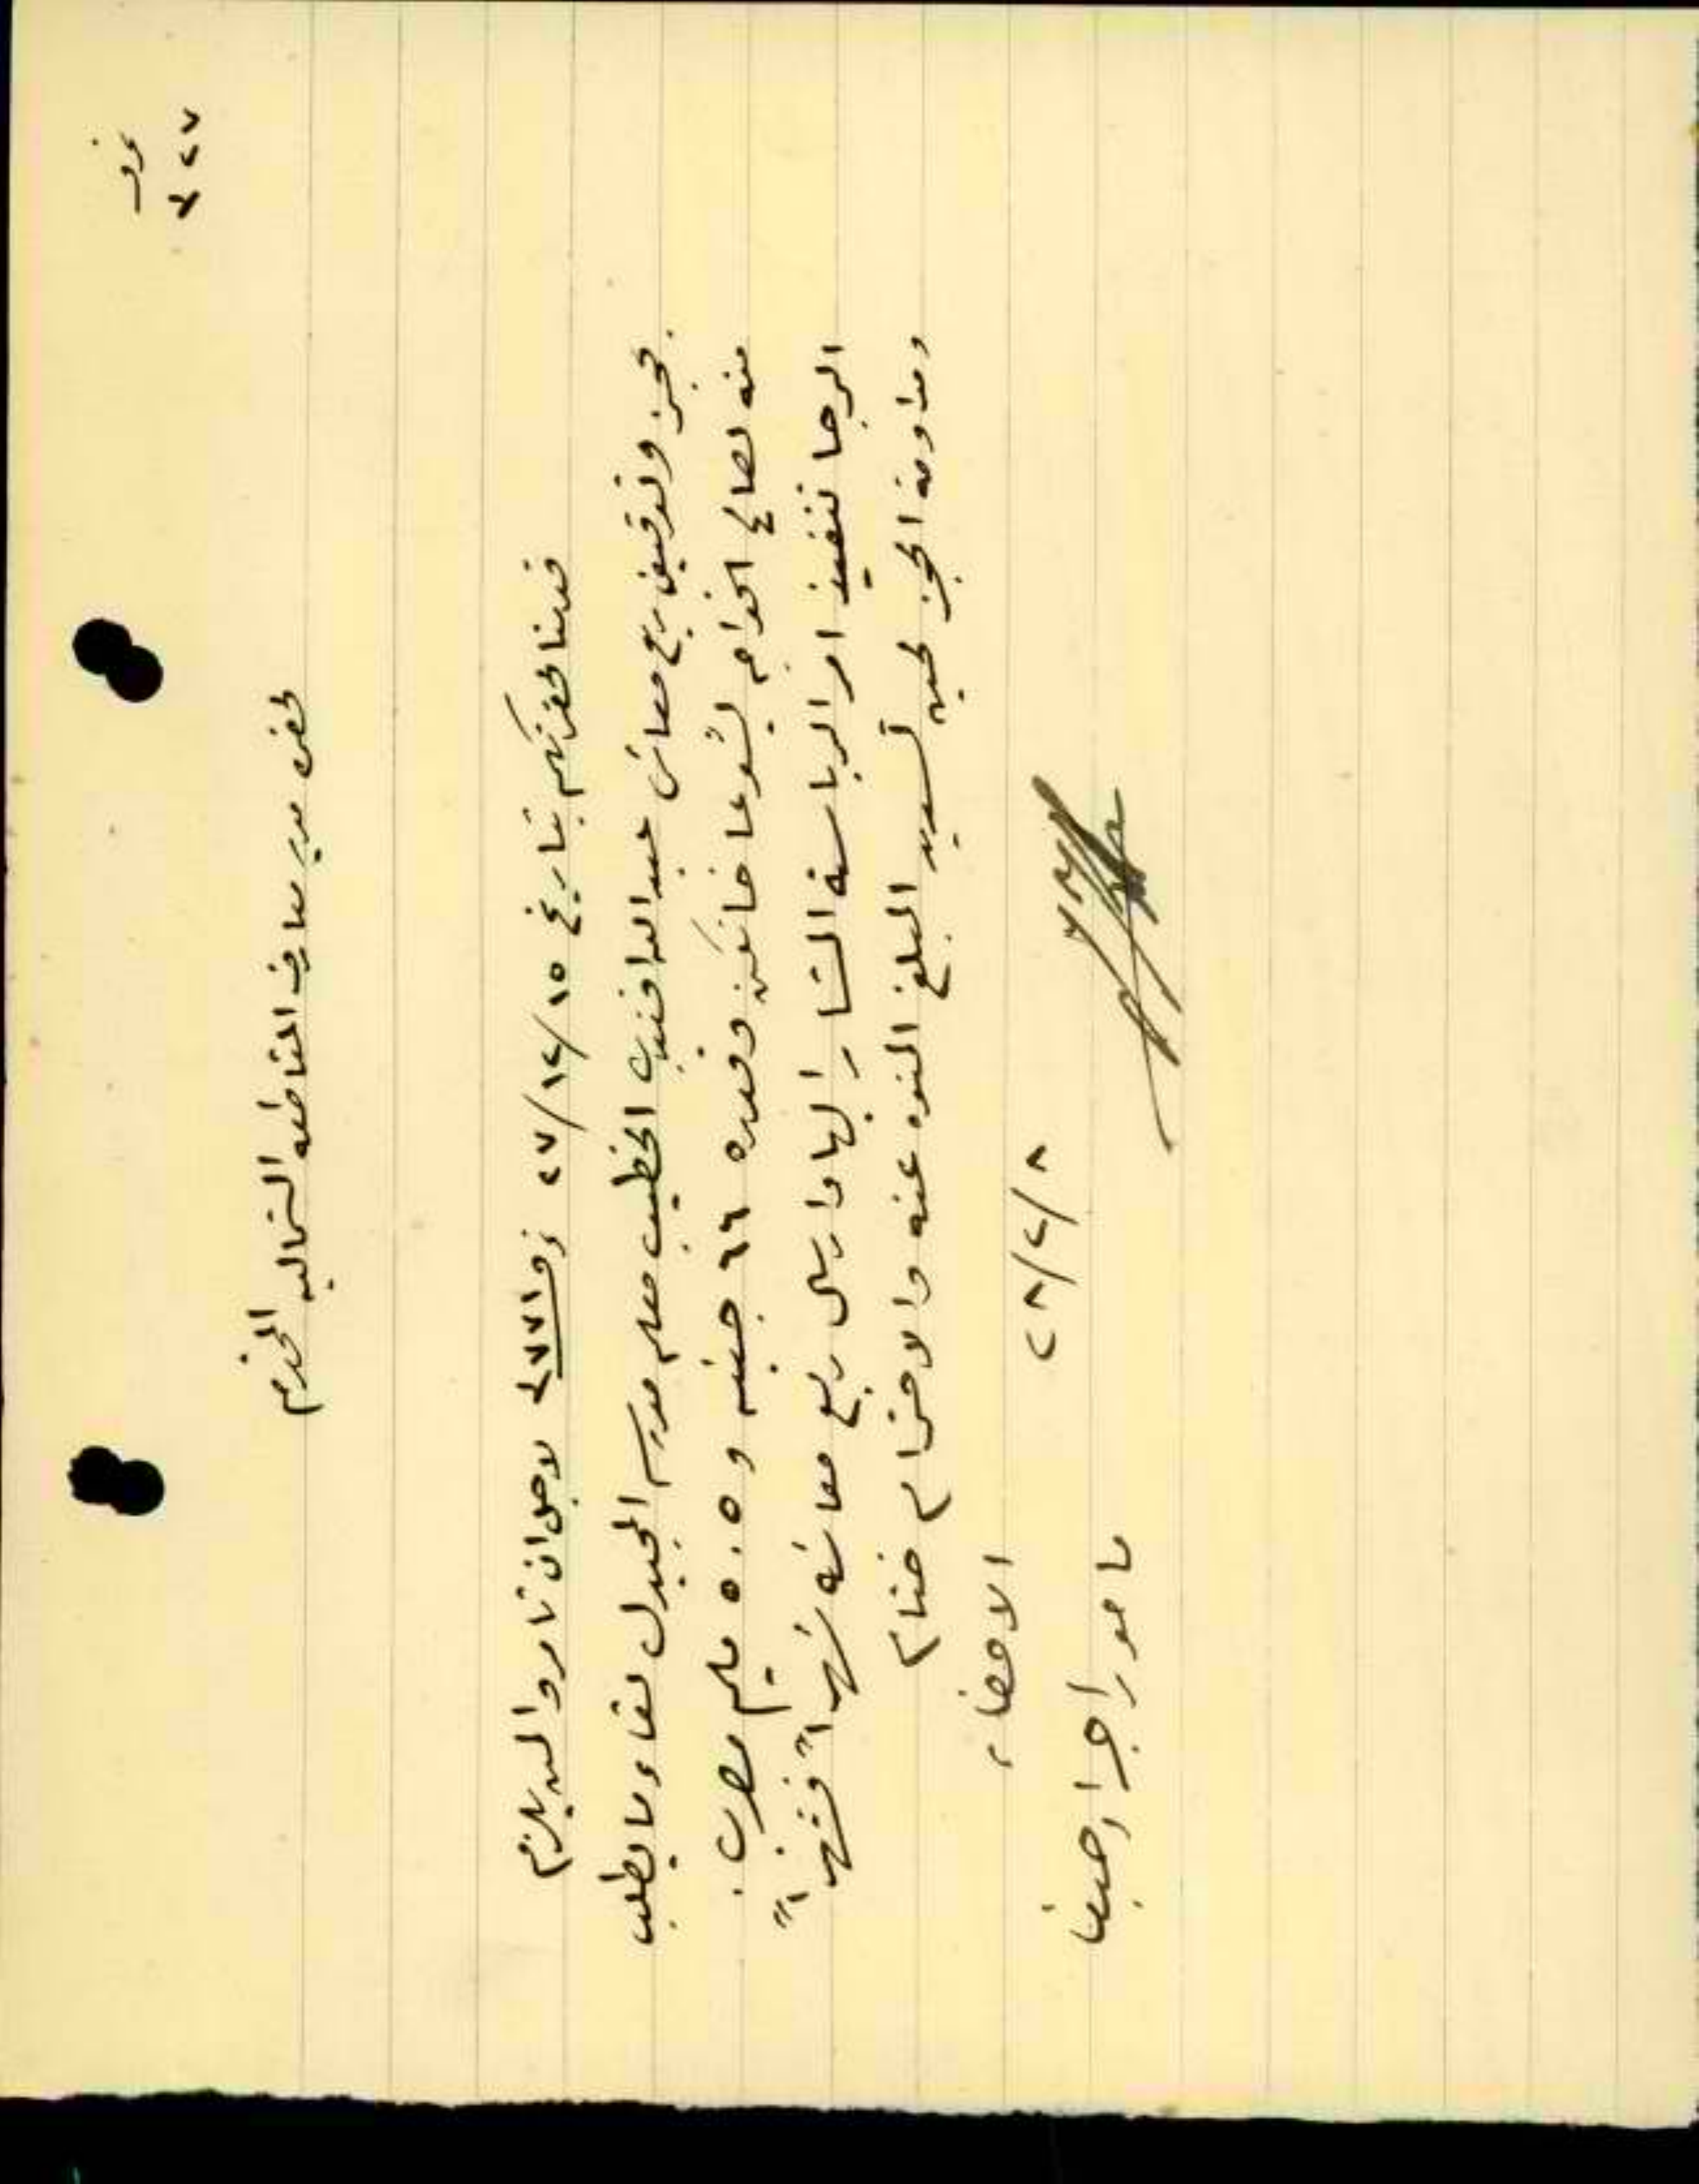 نمرو
٧٢٤
لحضرة مدير معارف المقاطعه الشماليه المحترم
قدمنا لحضرتكم بتاريخ ١٥/١٢/٢٧ نمرو ٤٧٧١ لاجل ان تامروا لمن يلزم
بحجز وتوقيف ربع معاش عبدالله افندي الخطيب معلم مدرسة المجيدل لقاء ما يطلب
منه لصالح الخواجه يشوعا خانكن وقدره ٦٦ جنيه و ٥٠٥ مليم مصري.
الرجا تنفيذ امر الرياسة المشار اليها وارسال ربع معاشه شهراً فشهراً
ومداومة الحجز لحين تسديد المبلغ المنوه عنه والاحترام ختام
الامضاء
٨/٢/٢٨
مامور اجرا حيفا